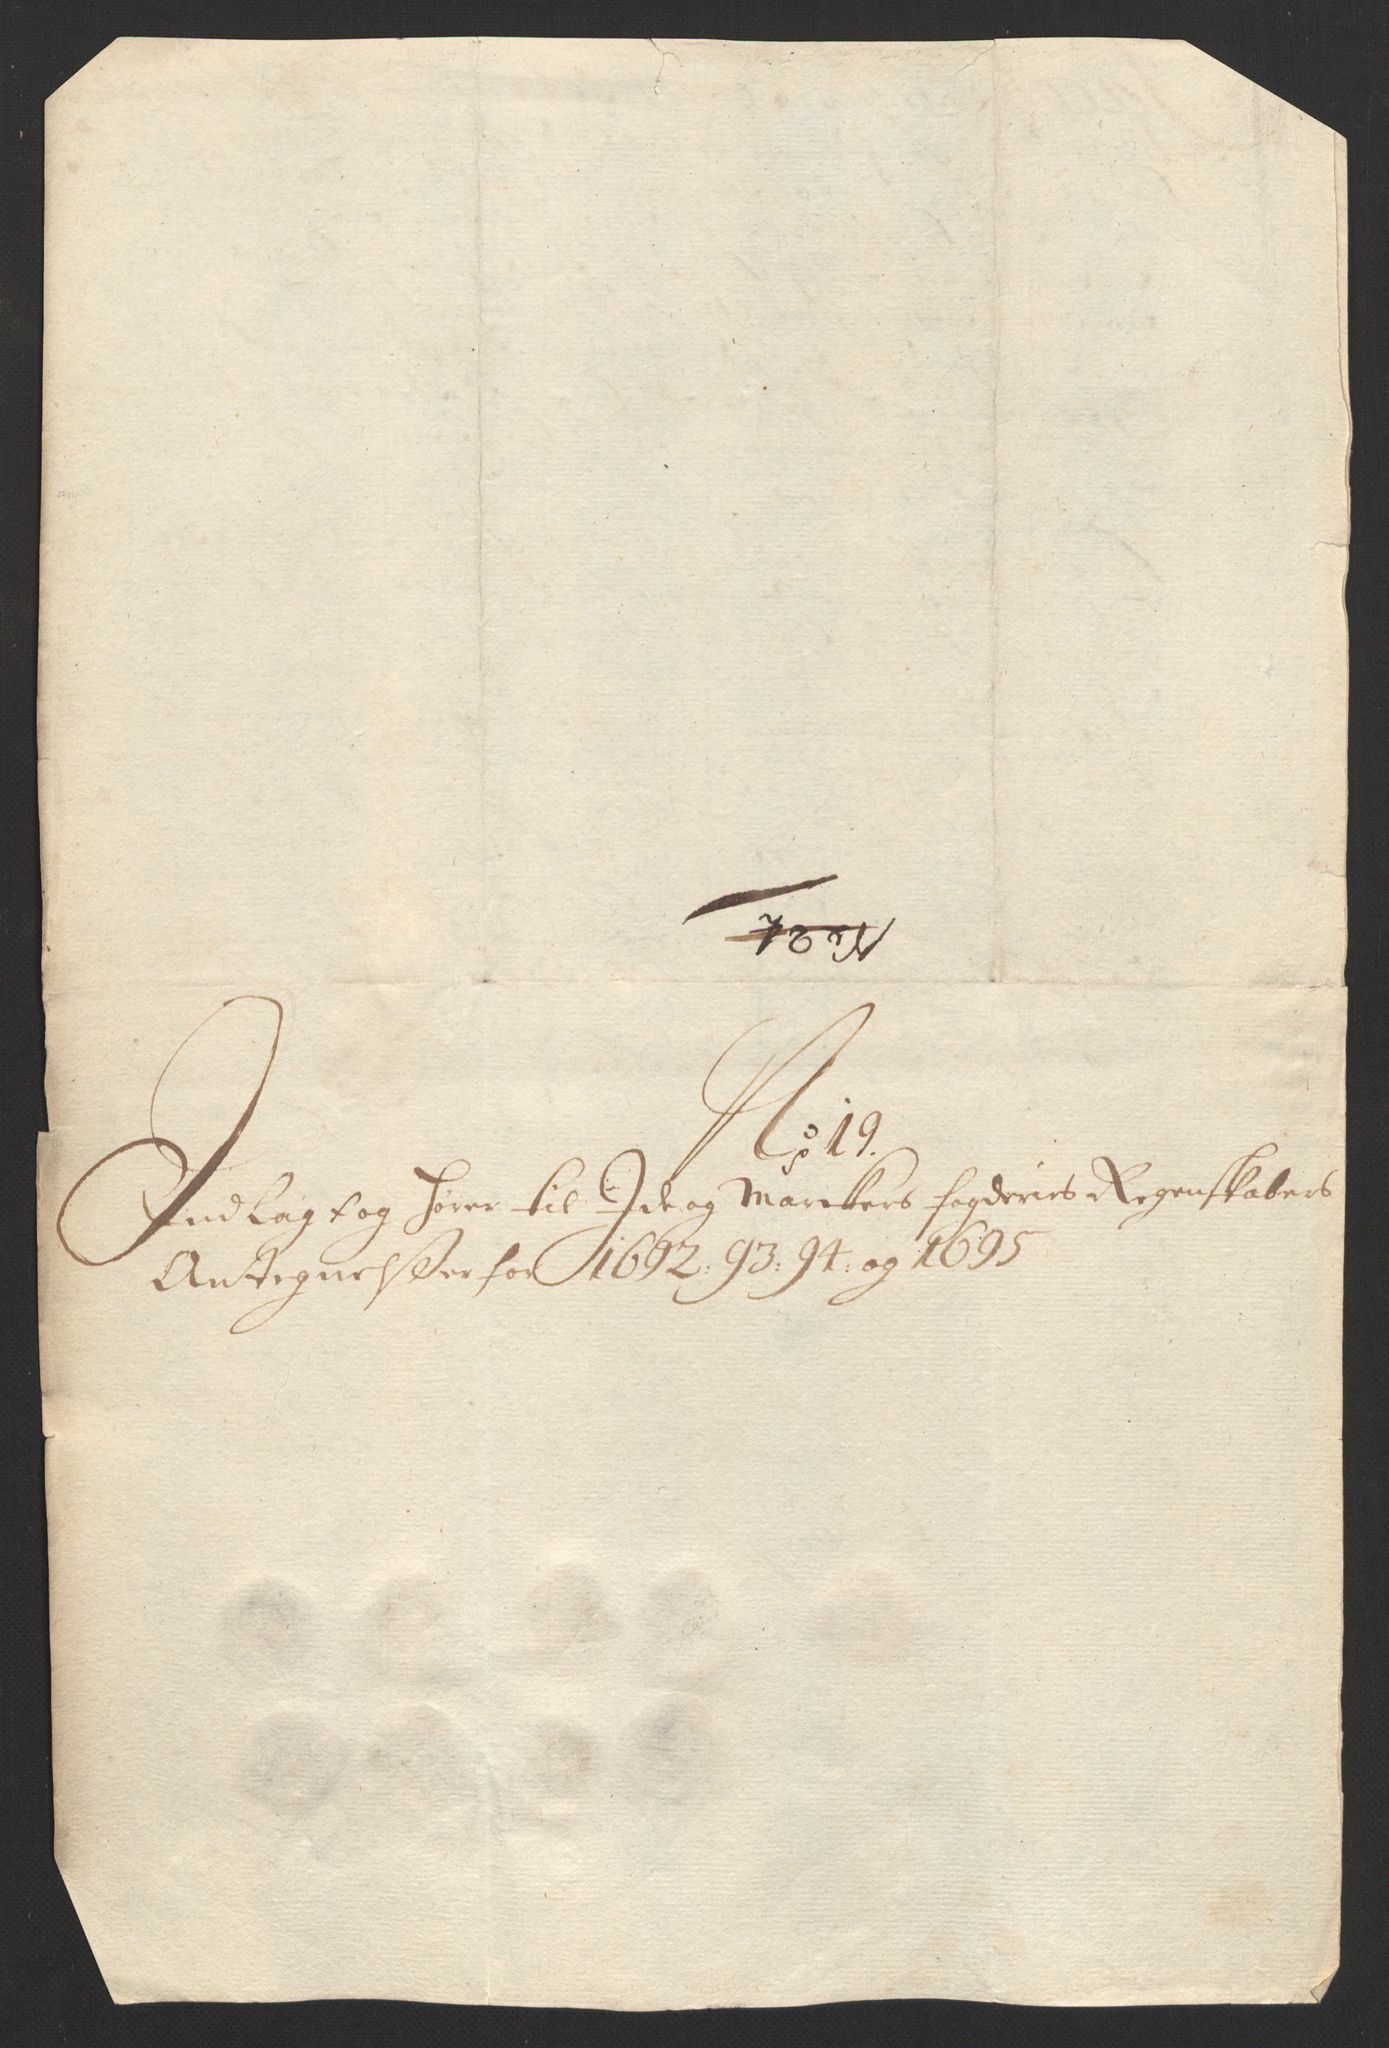 No 19.
Indlagt og hører til Ide og Marckers fogderies Regenskabers
Antegnelsser for 1692: 93: 94: og 1695